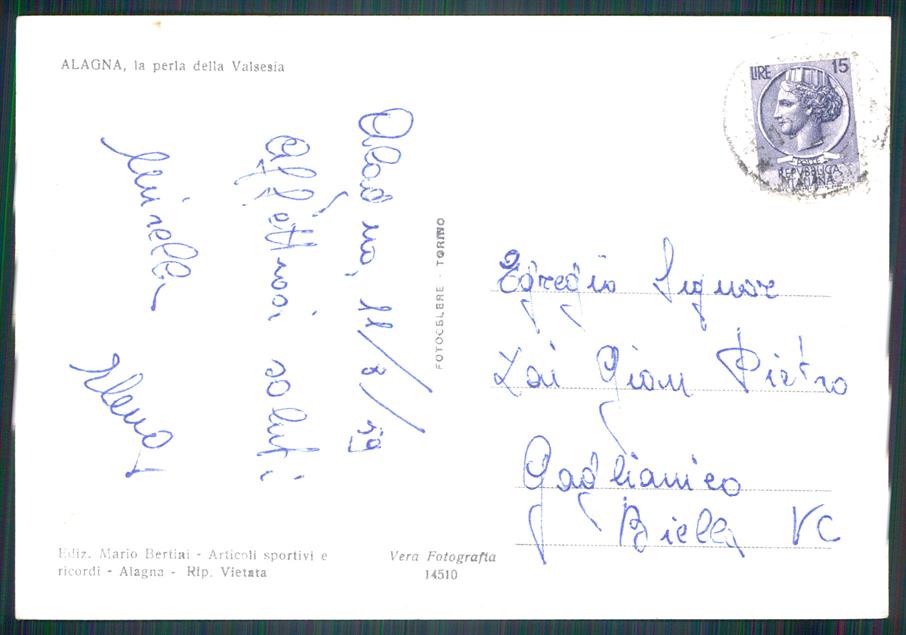 ALAGNA, la perla della Valsesia
LIRE 15
POSTE
REPUBBLICA
ITALIANA
Alagna, 11/8/59
Affettuosi saluti
Mirella
Elena
FOTOCELERE - TORINO
Egregio Signor
Zai Gian Pietro
Gaglianico
Biella VC
Ediz. Mario Bertini - Articoli sportivi e
ricordi - Alagna - Rip. Vietata
Vera Fotografia
14510